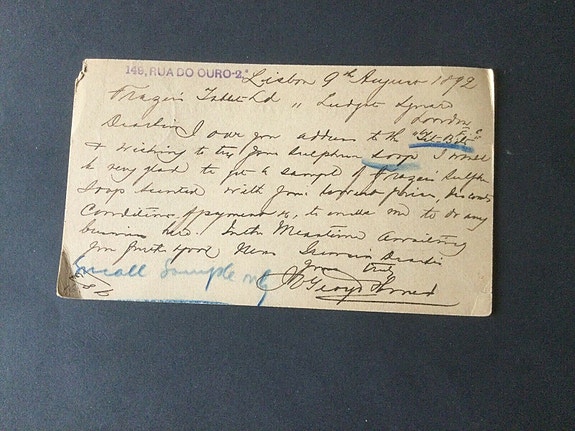 149, RUA DO OURO-2º
Lisbon 9th August 1892
Frazer's Tablet Ld " Ludgate Square
London
Dear Sirs I owe you address to the "Tit-Bits"
& wishing to try your Sulphur Soap I would
be very glad to get a sample of Frazer's Sulph
Soap with your lowest prices, discounts
Conditions of payment &c, to enable me to do any
business here. In the Meantime Awaiting
your good News Dear Sirs
Your truly
George
small sample